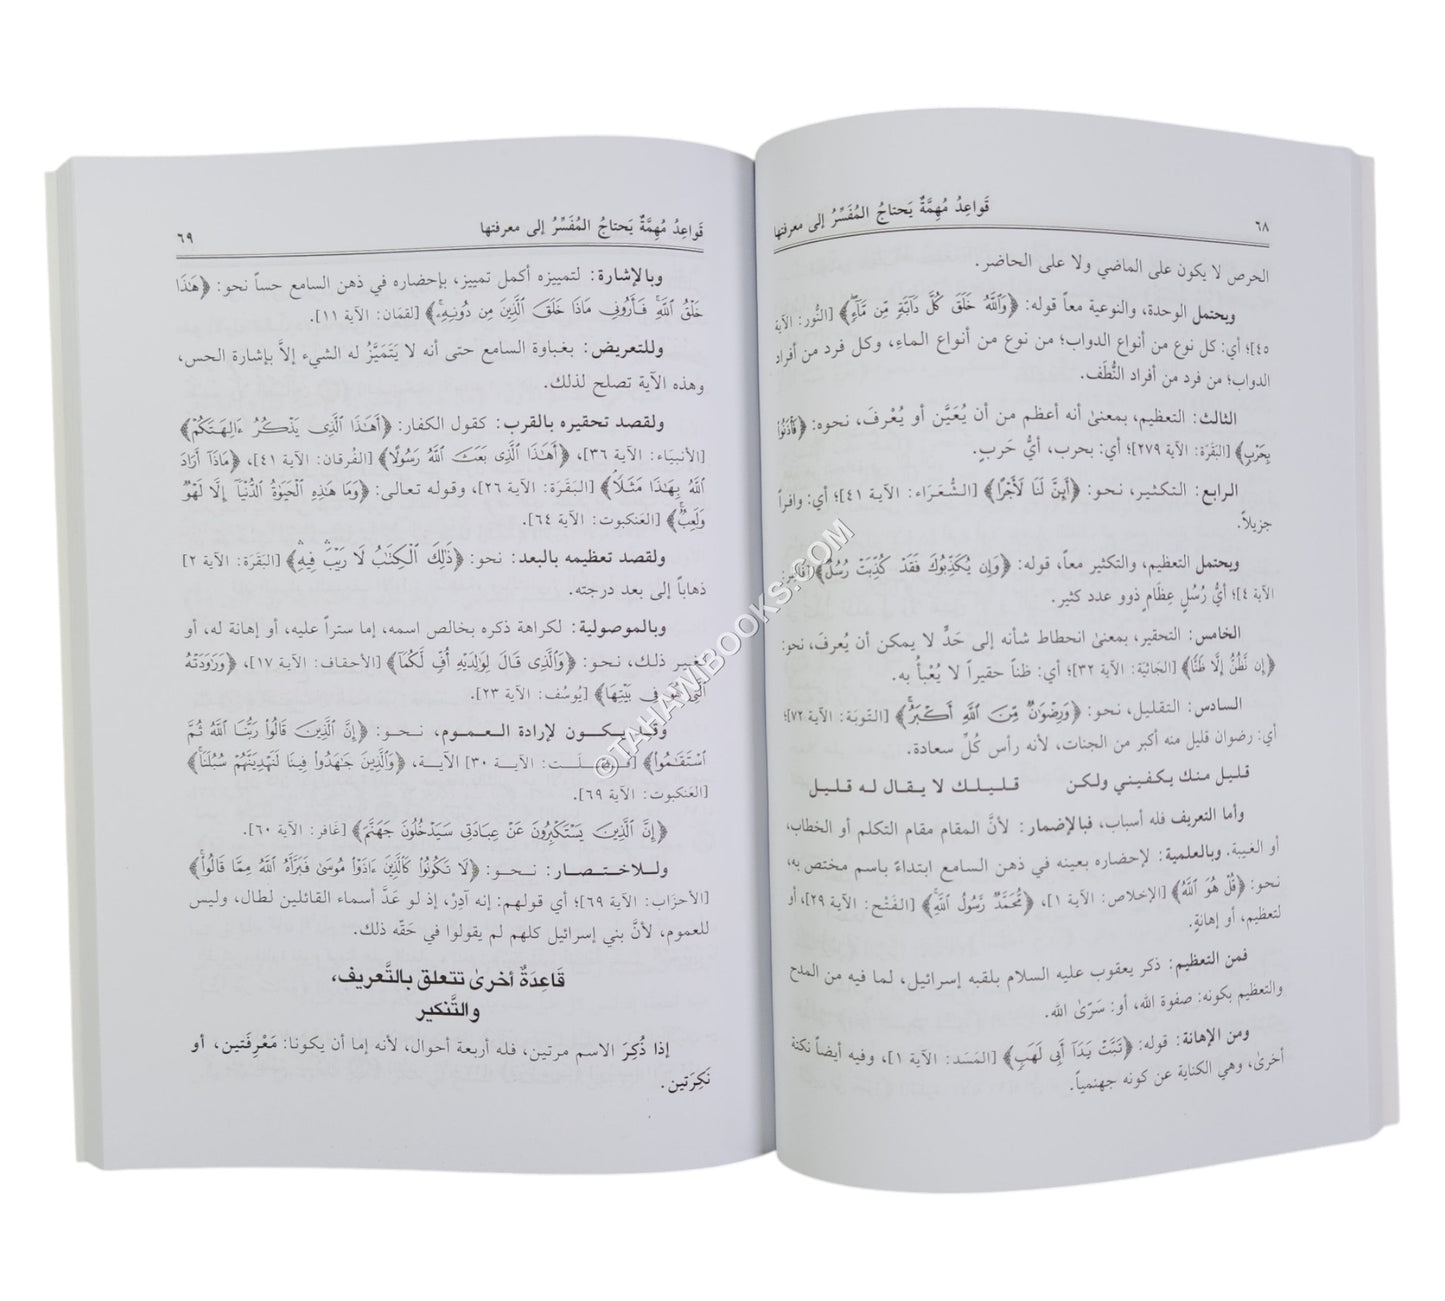 ٦٨ قَواعِدُ مُهِمَّةٌ يَحتاجُ المُفَسِّرُ إلى معرفتها
الحرص لا يكون على الماضي ولا على الحاضر.
ويحتمل الوحدة، والنوعية معاً قوله: ﴿وَاللَّهُ خَلَقَ كُلَّ دَآبَّةٍ مِّن مَّآءٍ﴾ [النُّور: الآية
٤٥]؛ أي: كل نوع من أنواع الدواب؛ من نوع من أنواع الماءِ، وكل فرد من أفراد
الدواب؛ من فرد من أفراد النُّطَف.
الثالث: التعظيم، بمعنىٰ أنه أعظم من أن يُعَيَّن أو يُعْرفَ، نحوه: ﴿فَأْذَنُوا
بِحَرْبٍ﴾ [البَقَرَة: الآية ٢٧٩]؛ أي: بحرب، أيُّ حَربٍ.
الرابع: التكثير، نحو: ﴿أَئِنَّ لَنَا لَأَجْرًا﴾ [الشُّعَرَاء: الآية ٤١]؛ أي: وافراً
جزيلاً.
ويحتمل التعظيم، والتكثير معاً، قوله: ﴿وَإِن يُكَذِّبُوكَ فَقَدْ كُذِّبَتْ رُسُلٌ﴾ [فَاطِر:
الآية ٤]؛ أيُّ رُسُلٍ عِظَامٍ ذوو عدد كثير.
الخامس: التحقير، بمعنىٰ انحطاط شأنه إلى حَدٍّ لا يمكن أن يُعرفَ، نحو:
﴿إِن نَّظُنُّ إِلَّا ظَنًّا﴾ [الجَاثيَة: الآية ٣٢]؛ أي: ظناً حقيراً لا يُعْبأُ به.
السادس: التقليل، نحو: ﴿وَرِضْوَانٌ مِّنَ اللَّهِ أَكْبَرُ﴾ [التّوبَة: الآية ٧٢]؛
أي: رضوان قليل منه أكبر من الجنات، لأنه رأس كُلِّ سعادة.
قليل منك يكفيني ولكن قليلك لا يقال له قليل
وأما التعريف فله أسباب، فبالإضمار: لأنَّ المقام مقام التكلم أو الخطاب،
أو الغيبة. وبالعلمية: لإحضاره بعينه في ذهن السامع ابتداءً باسم مختص به،
نحو: ﴿قُلْ هُوَ اللَّهُ﴾ [الإخلاص: الآية ١]، ﴿مُّحَمَّدٌ رَّسُولُ اللَّهِ﴾ [الفَتْح: الآية ٢٩]، أو
لتعظيم، أو إهانةٍ.
فمن التعظيم: ذكر يعقوب عليه السلام بلقبه إسرائيل، لما فيه من المدح
والتعظيم بكونه: صفوة الله، أو: سَرّىٰ الله.
ومن الإهانة: قوله: ﴿تَبَّتْ يَدَآ أَبِى لَهَبٍ﴾ [المَسَد: الآية ١]، وفيه أيضاً نكتة
أخرىٰ، وهي الكناية عن كونه جهنمياً.
قَواعِدُ مُهِمَّةٌ يَحتاجُ المُفَسِّرُ إلى معرفتها ٦٩
وبالإشارة: لتمييزه أكمل تمييز، بإحضاره في ذهن السامع حساً نحو: ﴿هَٰذَا
خَلْقُ اللَّهِ فَأَرُونِى مَاذَا خَلَقَ الَّذِينَ مِن دُونِهِ﴾ [لقمَان: الآية ١١].
وللتعريض: بغباوة السامع حتى أنه لا يَتَمَيَّزُ له الشيء إلاَّ بإشارة الحس،
وهذه الآية تصلح لذلك.
ولقصد تحقيره بالقرب: كقول الكفار: ﴿أَهَٰذَا الَّذِى يَذْكُرُ ءَالِهَتَكُمْ﴾
[الأنبيَاء: الآية ٣٦]، ﴿أَهَٰذَا الَّذِى بَعَثَ اللَّهُ رَسُولًا﴾ [الفُرقان: الآية ٤١]، ﴿مَاذَآ أَرَادَ
اللَّهُ بِهَٰذَا مَثَلًا﴾ [البَقَرَة: الآية ٢٦]، وقوله تعالى: ﴿وَمَا هَٰذِهِ الْحَيَوٰةُ الدُّنْيَآ إِلَّا لَهْوٌ
وَلَعِبٌ﴾ [العَنكبوت: الآية ٦٤].
ولقصد تعظيمه بالبعد: نحو: ﴿ذَٰلِكَ الْكِتَٰبُ لَا رَيْبَ فِيهِ﴾ [البَقَرَة: الآية ٢]
ذهاباً إلى بعد درجته.
وبالموصولية: لكراهة ذكره بخالص اسمه، إما ستراً عليه، أو إهانة له، أو
لغير ذلك، نحو: ﴿وَالَّذِى قَالَ لِوَٰلِدَيْهِ أُفٍّ لَّكُمَآ﴾ [الأحقاف: الآية ١٧]، ﴿وَرَٰوَدَتْهُ
الَّتِى هُوَ فِى بَيْتِهَا﴾ [يُوسُف: الآية ٢٣].
وقد يكون لإرادة العموم، نحو: ﴿إِنَّ الَّذِينَ قَالُوا رَبُّنَا اللَّهُ ثُمَّ
اسْتَقَٰمُوا﴾ [فُصّلَت: الآية ٣٠] الآية، ﴿وَالَّذِينَ جَٰهَدُوا فِينَا لَنَهْدِيَنَّهُمْ سُبُلَنَا﴾
[العَنكبوت: الآية ٦٩].
﴿إِنَّ الَّذِينَ يَسْتَكْبِرُونَ عَنْ عِبَادَتِى سَيَدْخُلُونَ جَهَنَّمَ﴾ [غَافر: الآية ٦٠].
وللاختصار: نحو: ﴿لَا تَكُونُوا كَالَّذِينَ ءَاذَوْا مُوسَىٰ فَبَرَّأَهُ اللَّهُ مِمَّا قَالُوا﴾
[الأحزَاب: الآية ٦٩]؛ أي قولهم: إنه آدَرُ، إذ لو عَدَّ أسماء القائلين لطال، وليس
للعموم، لأنَّ بني إسرائيل كلهم لم يقولوا في حَقّه ذلك.
قَاعِدَةٌ أخرىٰ تتعلق بالتَّعريف،
والتَّنكير
إذا ذُكِرَ الاسم مرتين، فله أربعة أحوال، لأنه إما أن يكونا: مَعْرِفَتين، أو
نَكِرَتين.
©TAHAMBOOKS.COM